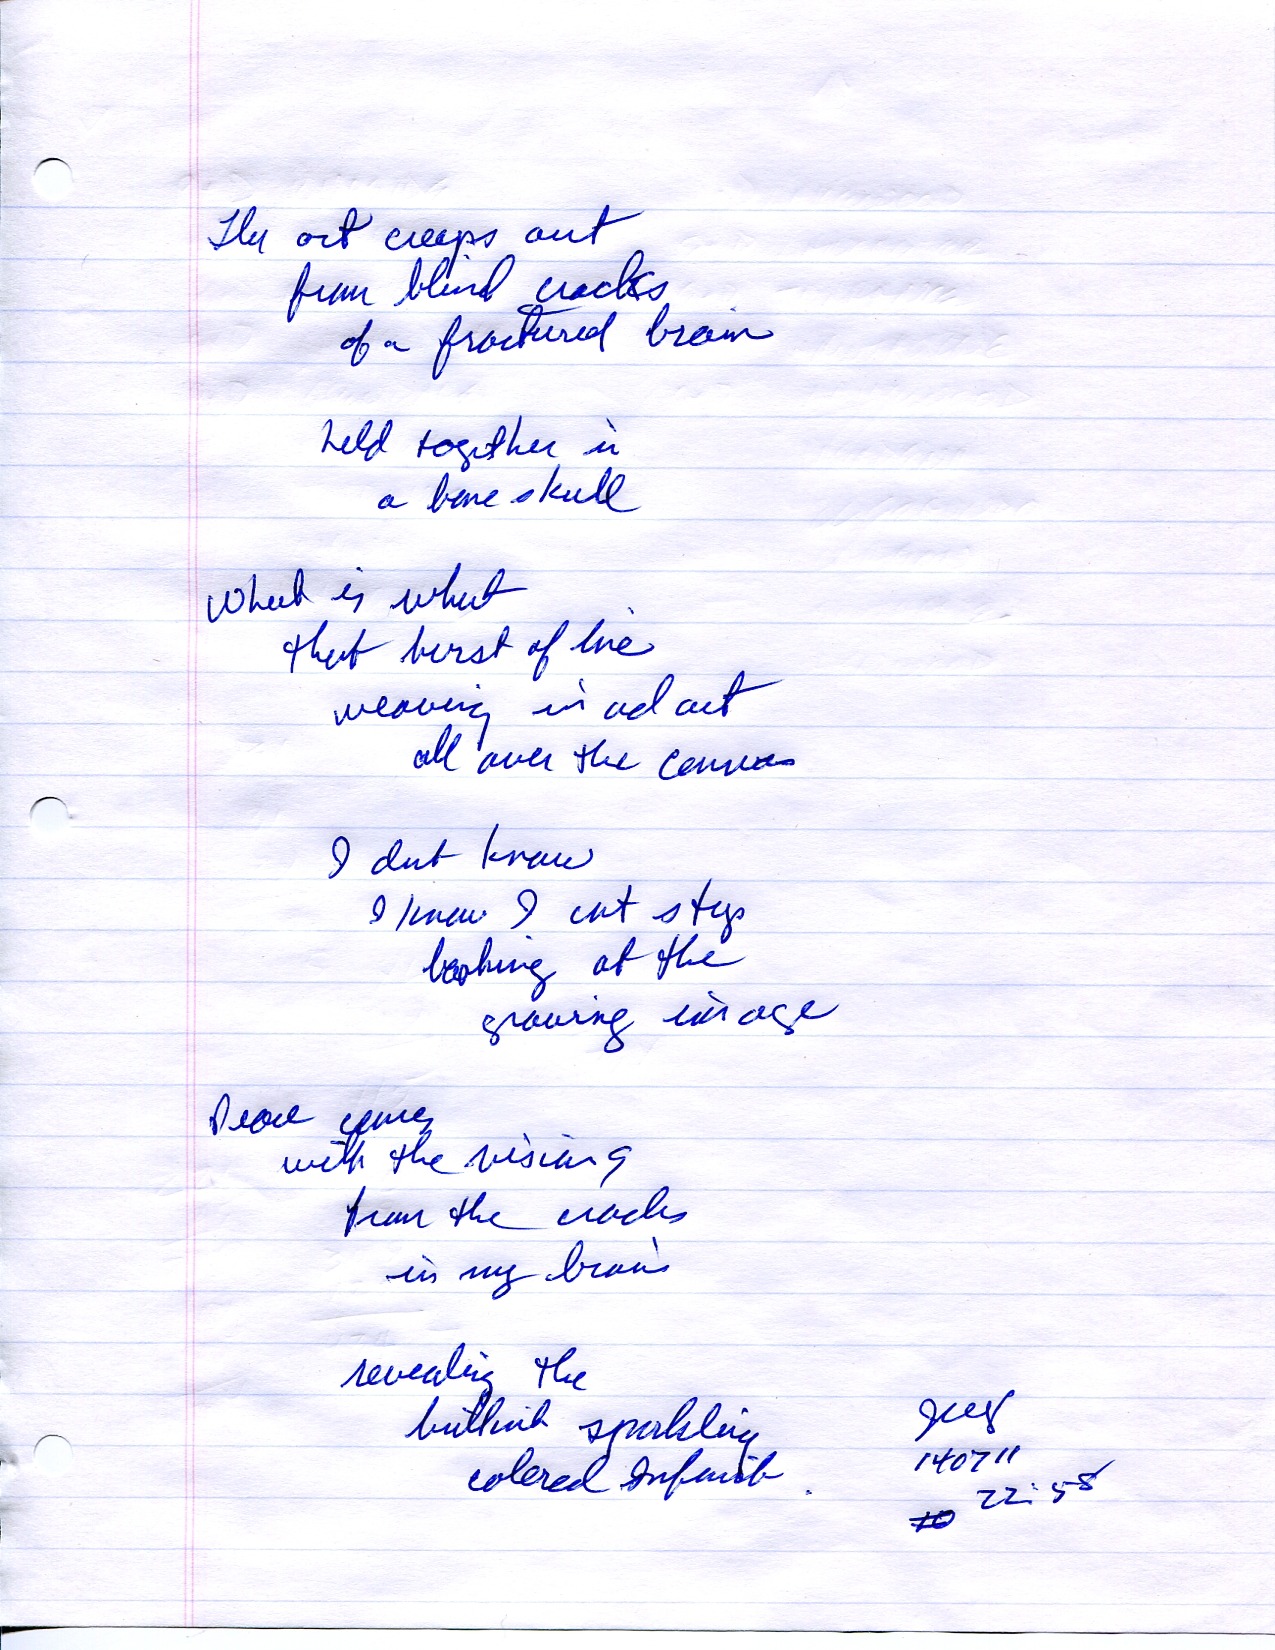 The art creeps out
from blind cracks
of a fractured brain
held together in
a bone skull
What is what
that burst of line
weaving in and out
all over the canvas
I dont know
I know I cant stop
looking at the
growing image
Peace comes
with the visions
from the cracks
in my brain
revealing the
brilliant sparkling
colored Infinite.
140711
22:58